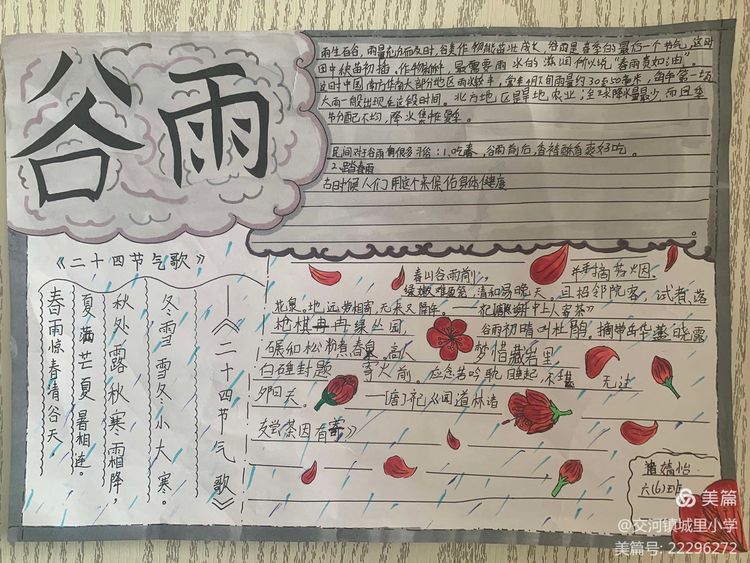 谷雨
雨生百谷,雨量充分而及时,谷类作物能茁壮成长,谷雨是春季的最后一个节气,这时
田中秧苗初插,作物新种,最需要雨水的滋润所以说"春雨贵如油"
这时中国南方华南大部分地区雨水较丰,每年4月下旬雨量约30到50毫米,每年第一场
大雨一般出现在这段时间。北方地区旱地农业;全年降水量最少而四季
分配不均,降水集中
民间对于谷雨有很多习俗:1.吃春,谷雨前后,香椿醇香爽口好吃。
2.踏春雨
古时候人们用这个来保佑身体健康
《二十四节气歌》
春雨惊春清谷天,
夏满芒夏暑相连。
秋处露秋寒霜降,
冬雪雪冬小大寒。
—《二十四节气歌》
春山谷雨前, 手摘芳烟
绿嫩难盈笼,清和易晚天。且招邻院客,试煮落
花泉。地远劳相寄,无来又隔年。
枪旗冉冉绿丛园, 谷雨初晴叫杜鹃。摘带岳华蒸晓露
碾和松粉煮春泉。高人梦惜藏岩里
白硾封题寄火前。应念苦吟耽睡起,不堪无过
夕阳天。 —[唐]《闻道林诸
友尝茶因有寄》
六(6)班
美篇
@交河镇城里小学
美篇号: 22296272